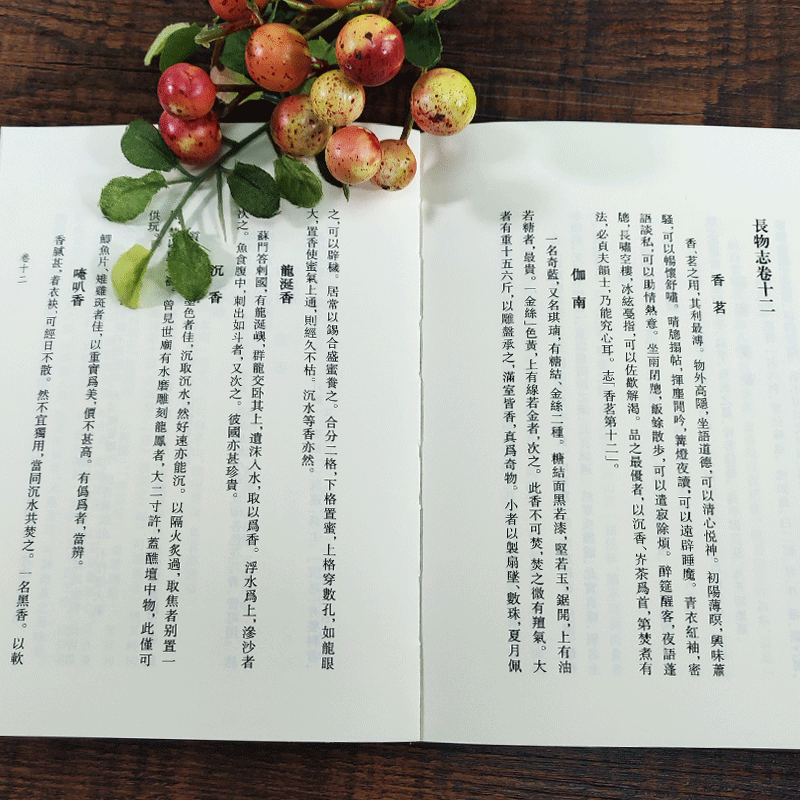 長物志卷十二
香茗
香、茗之用,其利最溥。物外高隱,坐語道德,可以清心悅神。初陽薄暝,興味蕭
騷,可以暢懷舒嘯。晴牕搨帖,揮麈閒吟,篝燈夜讀,可以遠辟睡魔。青衣紅袖,密
語談私,可以助情熱意。坐雨閉牕,飯餘散步,可以遣寂除煩。醉筵醒客,夜語蓬
牕,長嘯空樓,冰絃戛指,可以佐歡解渴。品之最優者,以沉香、岕茶爲首,第焚煮有
法,必貞夫韻士,乃能究心耳。志「香茗第十二」。
伽南
一名奇藍,又名琪㻴,有糖結、金絲二種。糖結面黑若漆,堅若玉,鋸開,上有油
若糖者,最貴。「金絲」色黃,上有線若金者,次之。此香不可焚,焚之微有羶氣。大
者有重十五六斤,以雕盤承之,滿室皆香,真爲奇物。小者以製扇墜、數珠,夏月佩
之,可以辟穢。居常以錫合盛蜜養之。合分二格,下格置蜜,上格穿數孔,如龍眼
大,置香使蜜氣上通,則經久不枯。沉水等香亦然。
龍涎香
蘇門答剌國,有龍涎嶼,羣龍交卧其上,遺沫入水,取以爲香。浮水爲上,滲沙者
次之。魚食腹中,剌出如斗者,又次之。彼國亦甚珍貴。
沉香
墨色者佳,沉取沉水,然好速亦能沉。以隔火炙過,取焦者别置一
曾見世廟有水磨雕刻龍鳳者,大二寸許,蓋醮壇中物,此僅可
供玩。
鯽魚片、雉雞斑者佳,以重實爲美,價不甚高。有僞爲者,當辨。
唵叭香
香膩甚,着衣袂,可經日不散。然不宜獨用,當同沉水共焚之。一名黑香。以軟
卷十二